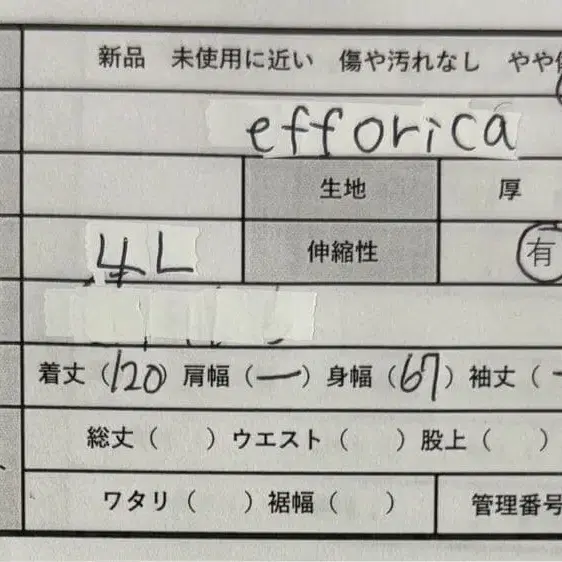 新品 未使用に近い 傷や汚れなし やや
efforica
生地 厚
4L 伸縮性 有
着丈（120）肩幅（ー）身幅（67）袖丈（
総丈（ ）ウエスト（ ）股上（ ）
ワタリ（ ）裾幅（ ） 管理番号